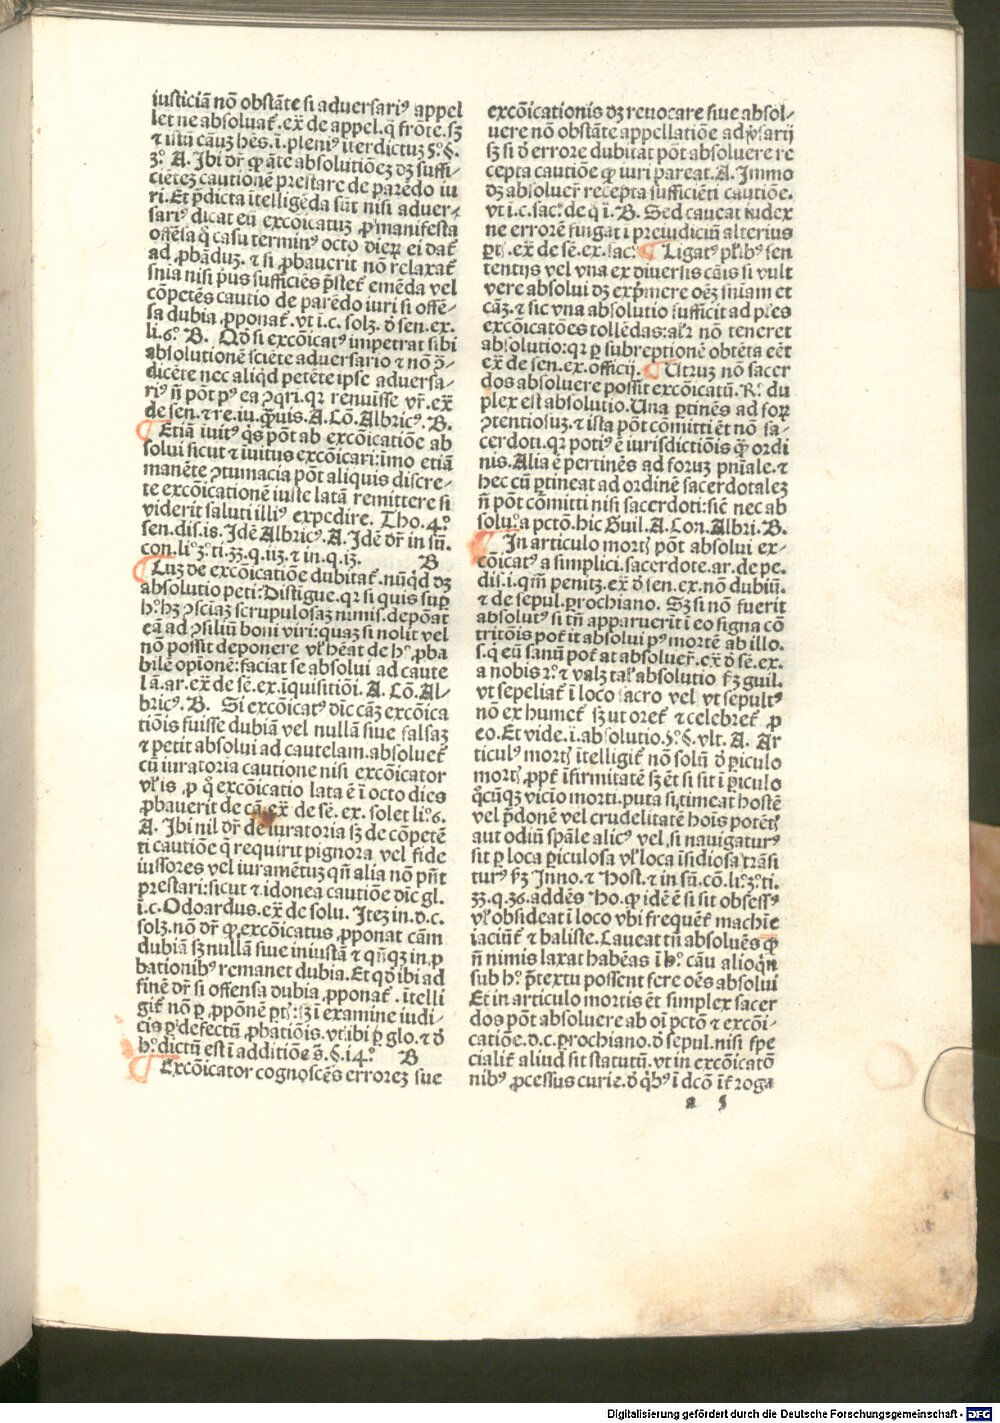 iusticiã nõ obstãte si aduersariꝰ appel
let ne absoluat̃.ex̃ de appel.q̃ frõte.sꝫ
⁊ istũ cãuꝫ hẽs.ĩ.pleniꝰ ĩterdictuꝫ 5.º§.
3.º A. Ibi dr̃ ꝙ ãte absolutiõeꝫ dꝫ suffi-
ciẽteꝫ cautionẽ prestare de parẽdo iu
ri.Et p̃dicta ĩtelligẽda sũt nisi aduer-
sariꝰ dicat eũ excõicatuꝫ ꝓ manifesta
offẽsa q̊ casu terminꝰ octo dieꝝ ei dat̃
ad ꝓbãduꝫ.⁊ si ꝓbauerit nõ relaxat̃
snĩa nisi p̃us sufficiẽs p̃stet̃ emẽda vel
cõpetẽs cautio de parẽdo iuri si offẽ-
sa dubia ꝓponat̃.vt ĩ.c. solꝫ. d̾ sen.ex.
li.6.º B. Qd̾ si excõicatꝰ impetrat sibi
absolutionẽ sciẽte aduersario ⁊ nõ ↄ̃-
dicẽte nec aliq̃d petẽte ipse aduersa-
riꝰ ñ põt pꝰ ea ↄq̃ri.qꝛ renuisse vr̃.ex̃
de sen.⁊ re.iu.q̃uis.A.Cõ.Albricꝰ.B.
Etiã iuitꝰ q̃s põt ab excõicatiõe ab
solui sicut ⁊ ĩuitus excõicari:imo etiã
manẽte ↄtumacia põt aliquis discre-
te excõicationẽ iuste latã remittere si
viderit saluti illiꝰ expedire. Tho.4.º
sen.dis.is. Idẽ Albricꝰ.A.Idẽ dr̃ in sũ.
con.li.º3.º ti.33.q.iiꝫ.⁊ in.q.iꝫ. B
Cuꝫ de excõicatiõe dubitat̃.nũq̃d dꝫ
absolutio peti:Distigue.qꝛ si quis suꝑ
h.º hꝫ ↄsciaꝫ scrupulosaꝫ nimis:depõat
eã ad ↄsiliũ boni viri:quaꝫ si nolit vel
nõ possit deponere vl̾ hẽat de h.º ꝓba
bilẽ opionẽ:faciat se absolui ad caute
lã.ar.ex̃ de sẽ.ex.ĩquisitiõi. A. Cõ.Al-
bricꝰ.B. Si excõicatꝰ dic̃ cãꝫ excõica
tiõis fuisse dubiã vel nullã siue falsaꝫ
⁊ petit absolui ad cautelam.absoluet̃
cũ iuratoria cautione nisi excõicator
vl̾ is ,ꝓ q̊ excõicatio lata ẽ ĩ octo dies
ꝓbauerit de cã.ex̃ de sẽ. ex. solet li.º6.
A. Ibi nil dr̃ de iuratoria sꝫ de cõpetẽ
ti cautiõe q̃ requirit pignora vel fide
iussores vel iuramẽtuꝫ qñ alia nõ pñt
prestari:sicut ⁊ idonea cautiõe dic̃ gl.
ĩ.c.Odoardus.ex̃ de solu. Iteꝫ in.d.c.
solꝫ.nõ dr̃ ꝙ excõicatus ꝓponat cãm
dubiã sꝫ nullã siue iniustã ⁊ qñqꝫ in ꝓ
bationibꝰ remanet dubia.Et qd̾ ibi ad
finẽ dr̃ si offensa dubia ꝓponat̃.ĩtelli
git̃ nõ ꝑ ꝓpõnẽ ptꝭ:sꝫ ĩ examine iudi-
cis ꝑ defectũ ꝓbatiõis.vt ibi ꝑ glo.⁊ d̾
h.º dictũ est ĩ additiõe s̃.§.i4.º B
Excõicator cognoscẽs erroreꝫ sue
excõicationis dꝫ reuocare siue absol-
uere nõ obstãte appellatiõe adṽsarij
sꝫ si d̾ errore dubitat põt absoluere re
cepta cautiõe ꝙ iuri pareat.A.Immo
dꝫ absoluer̃ recepta sufficiẽti cautiõe.
vt ĩ.c.sacꝰ.de q̊ ĩ.B. Sed caueat iudex
ne errorẽ fingat ĩ preiudiciũ alterius
ꝑtꝭ.ex̃ de sẽ.ex.sac.º Ligatꝰ pl̾ibꝰ sen
tentijs vel vna ex diuersis cãis si vult
vere absolui dꝫ exp̃mere oẽꝫ sniam et
cãꝫ.⁊ sic vna absolutio sufficit ad ples
excõicatões tollẽdas:al̾r nõ teneret
absolutio:qꝛ ꝑ subreptionẽ obtẽta eẽt
ex̃ de sen.ex.officij. Utruꝫ nõ sacer
dos absoluere possit excõicatũ.R.º du
plex est absolutio.Una ꝑtinẽs ad foꝝ
ↄtentiosuꝫ.⁊ ista põt cõmitti ẽt nõ sa-
cerdoti.qꝛ potiꝰ ẽ iurisdictiõis q̃ ordi
nis.Alia ẽ pertinẽs ad foruꝫ pnĩale.⁊
hec cũ ꝑtineat ad ordinẽ sacerdotaleꝫ
ñ põt cõmitti nisi sacerdoti:siẽ nec ab
solu.º a pctõ.hic Guil.A.Con.Albri.B.
In articulo mortꝭ põt absolui ex-
cõicatꝰ a simplici.sacerdote.ar.de pe.
dis.i.qm̃ penitꝫ.ex̃ d̾ sen.ex.nõ dubiũ.
⁊ de sepul.ꝑrochiano. Sꝫ si nõ fuerit
absolutꝰ si tñ apparuerit ĩ eo signa cõ
tritõis pot̃ it absolui pꝰ mortẽ ab illo.
s.q̃ eũ sanũ pot̃ at absoluer̃.ex̃ d̾ sẽ.ex.
a nobis 2.º ⁊ valꝫ tal̾ absolutio ẜꝫ guil.
vt sepeliat̃ ĩ loco sacro vel vt sepultꝰ
nõ ex humet̃ sꝫ ut oret̃ ⁊ celebret̃ ꝓ
eo.Et vide.ĩ.absolutio.5.º§.vlt. A. Ar
ticulꝰ mortꝭ ĩtelligit̃ nõ solũ d̾ ꝑiculo
mortꝭ ꝓpt̃ ĩfirmitatẽ sꝫ ẽt si sit ĩ ꝑiculo
q̊cũqꝫ vicio morti.puta si timeat hostẽ
vel p̃donẽ vel crudelitatẽ hoĩs potẽtꝭ
aut odiũ spãle alicꝰ vel si nauigaturꝰ
sit ꝑ loca ꝑiculosa vl̾ loca ĩsidiosa trãsi
turꝰ ẜꝫ Inno.⁊ Host.⁊ in sũ.cõ.li.º3.º ti.
33.q.36.addẽs Ho.ꝙ idẽ ẽ si sit obsessꝰ
vl̾ obsideat ĩ loco vbi frequẽt̃ machiẽ
iaciũt̃ ⁊ baliste.Caueat tñ absoluẽs ꝙ
ñ nimis laxat habẽas ĩ h.º cãu alioq̃n
sub h.º p̃textu possent fere oẽs absolui
Et in articulo mortis ẽt simplex sacer
dos põt absoluere ab oĩ pctõ ⁊ excõi-
catiõe.d.c.ꝑrochiano.d̾ sepul.nisi spe
cialit̃ aliud sit statutũ.vt in excõicatõ
nibꝰ ꝓcessus curie.d̾ q̃bꝰ ĩ dcõ ĩt̃ roga
a 5
Digitalisierung gefördert durch die Deutsche Forschungsgemeinschaft - DFG